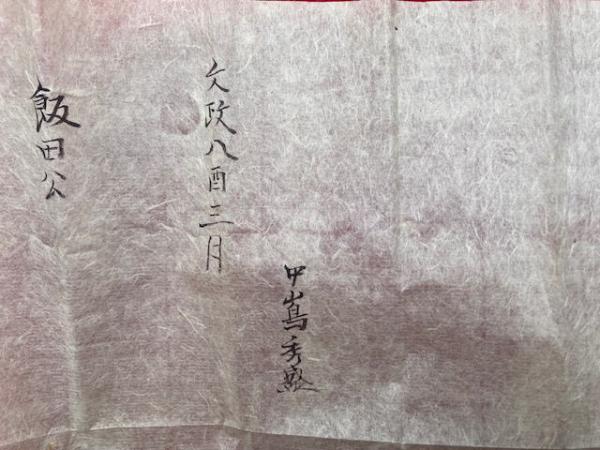 中嶌秀盛
文政八酉三月
飯田公